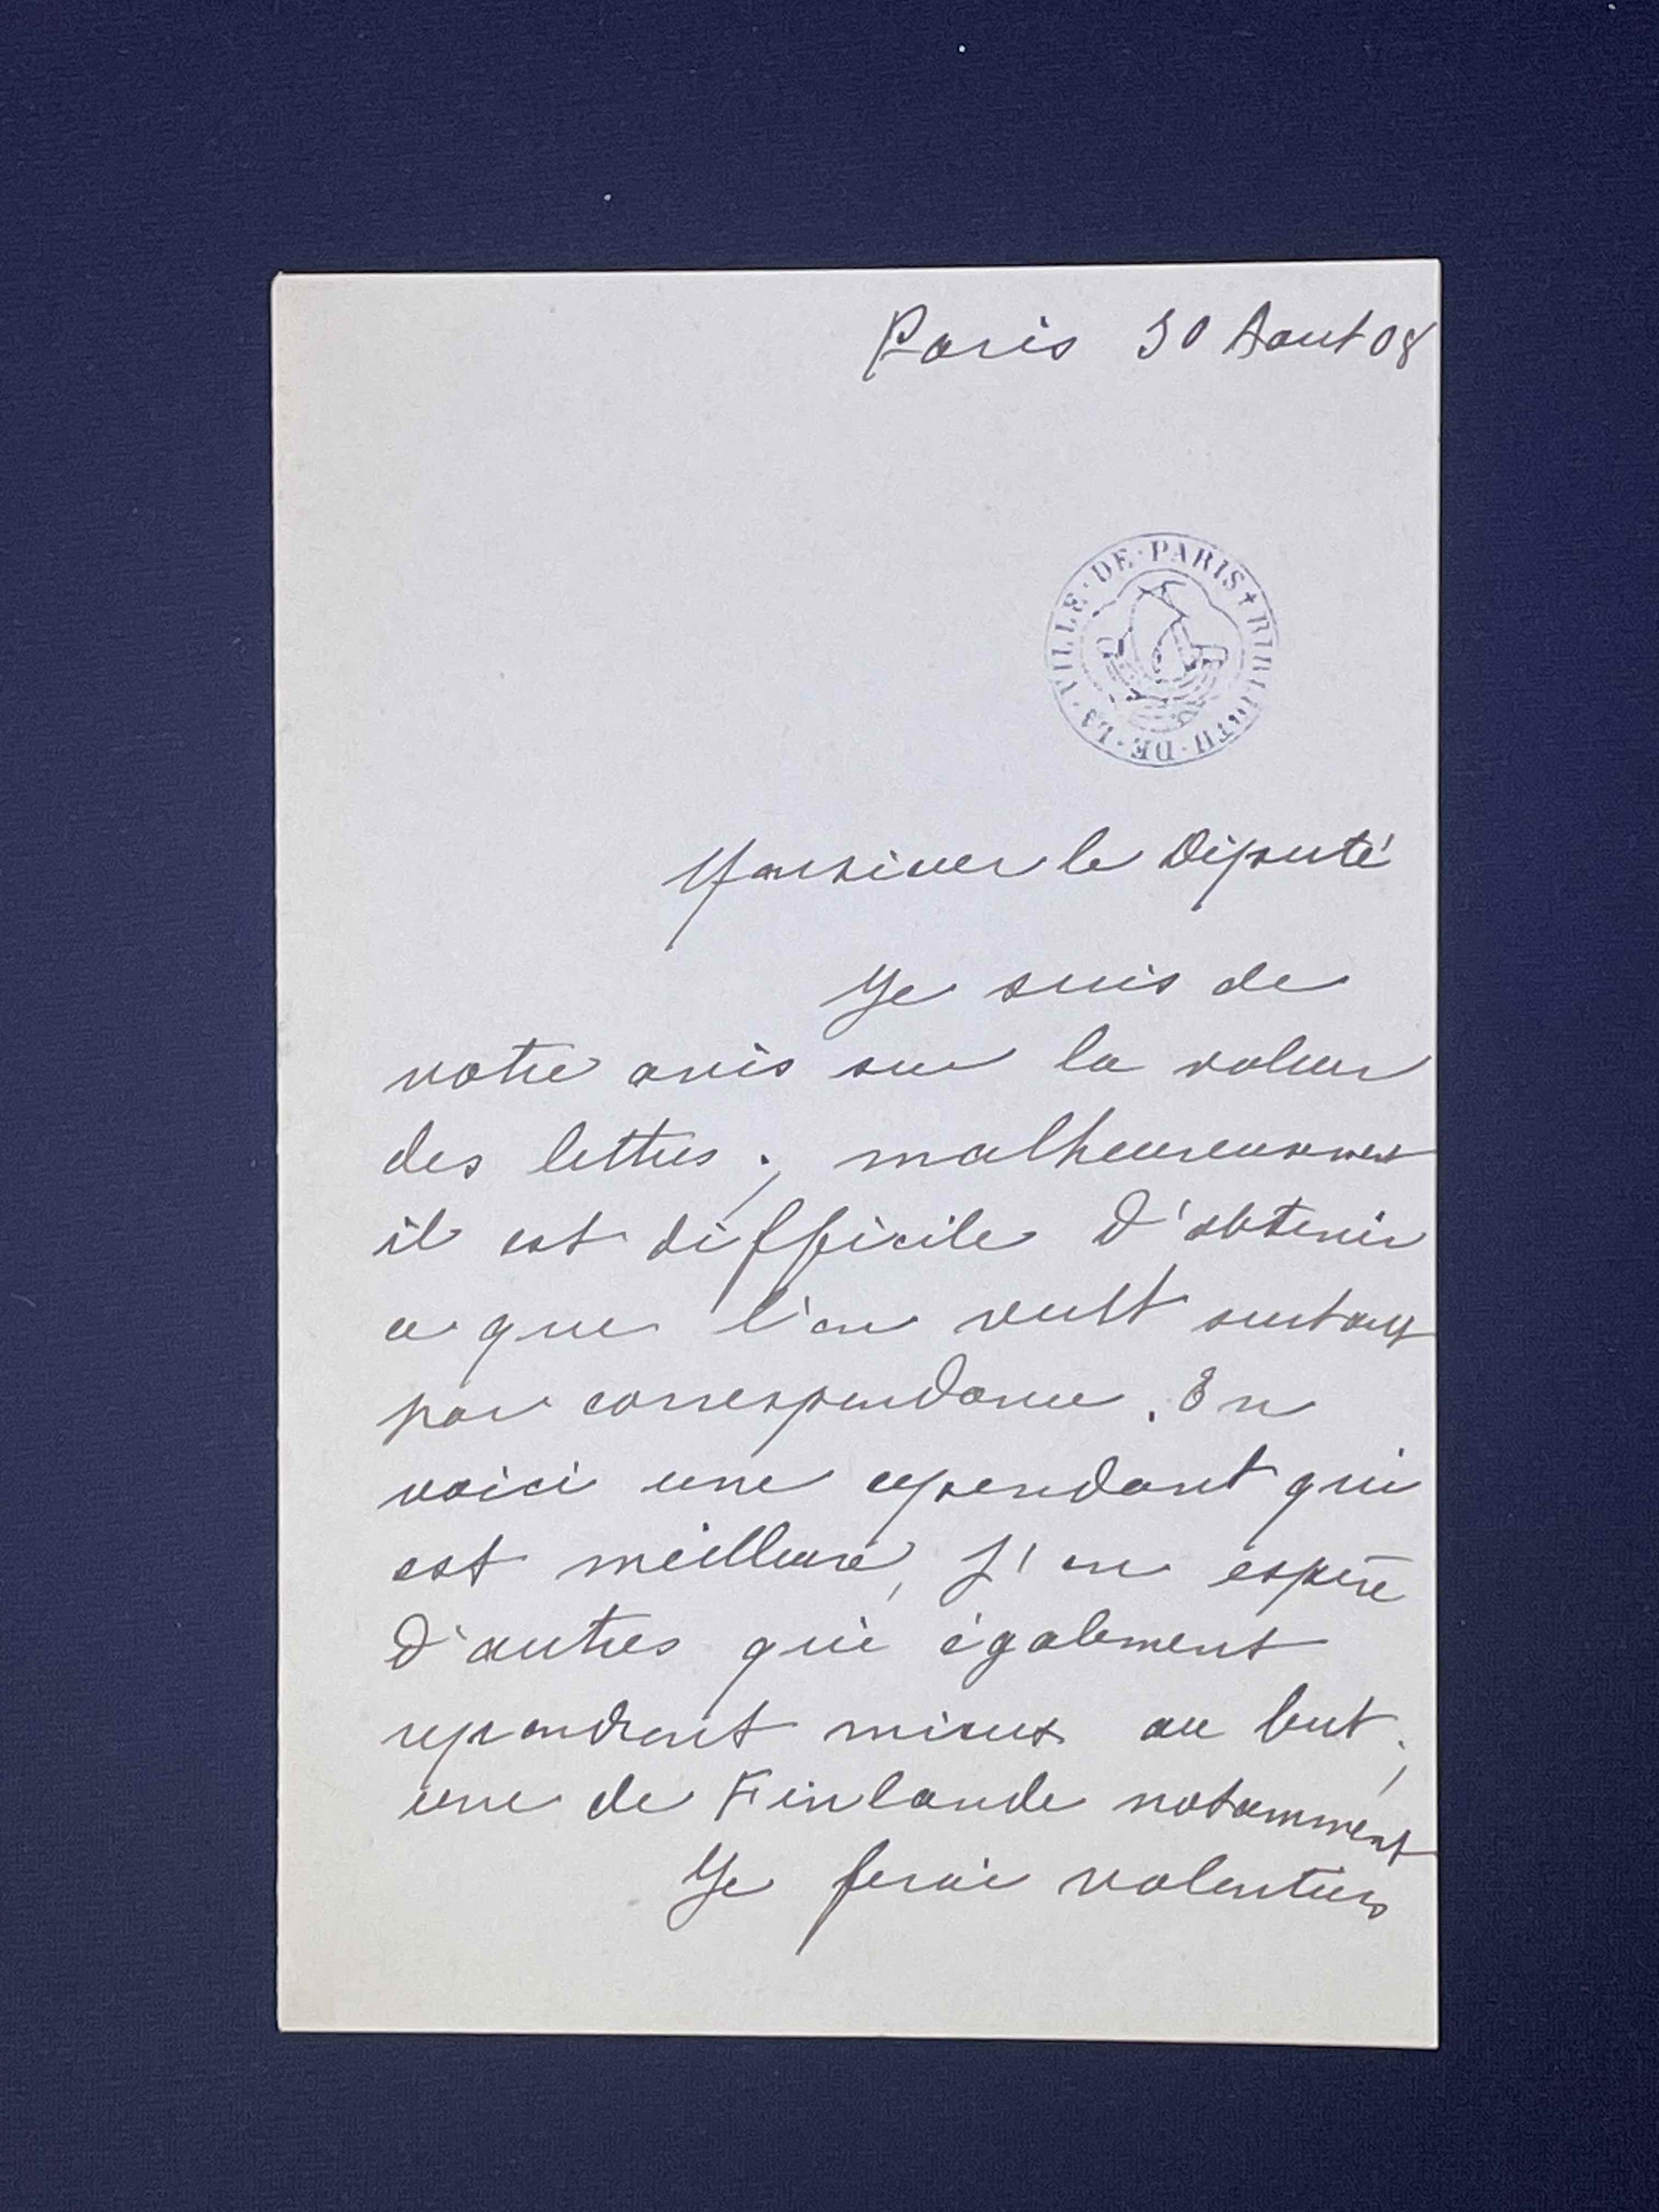 Paris 30 Aout 08
BIBLIOTH · DE · LA · VILLE · DE · PARIS
Monsieur le Député
Je suis de
votre avis sur la valeur
des lettres ; malheureusement
il est difficile d'obtenir
ce que l'on veut surtout
par correspondance. En
voici une cependant qui
est meilleure, j'en espère
d'autres qui également
repondront mieux au but ;
une de Finlande notamment
Je ferai volontiers